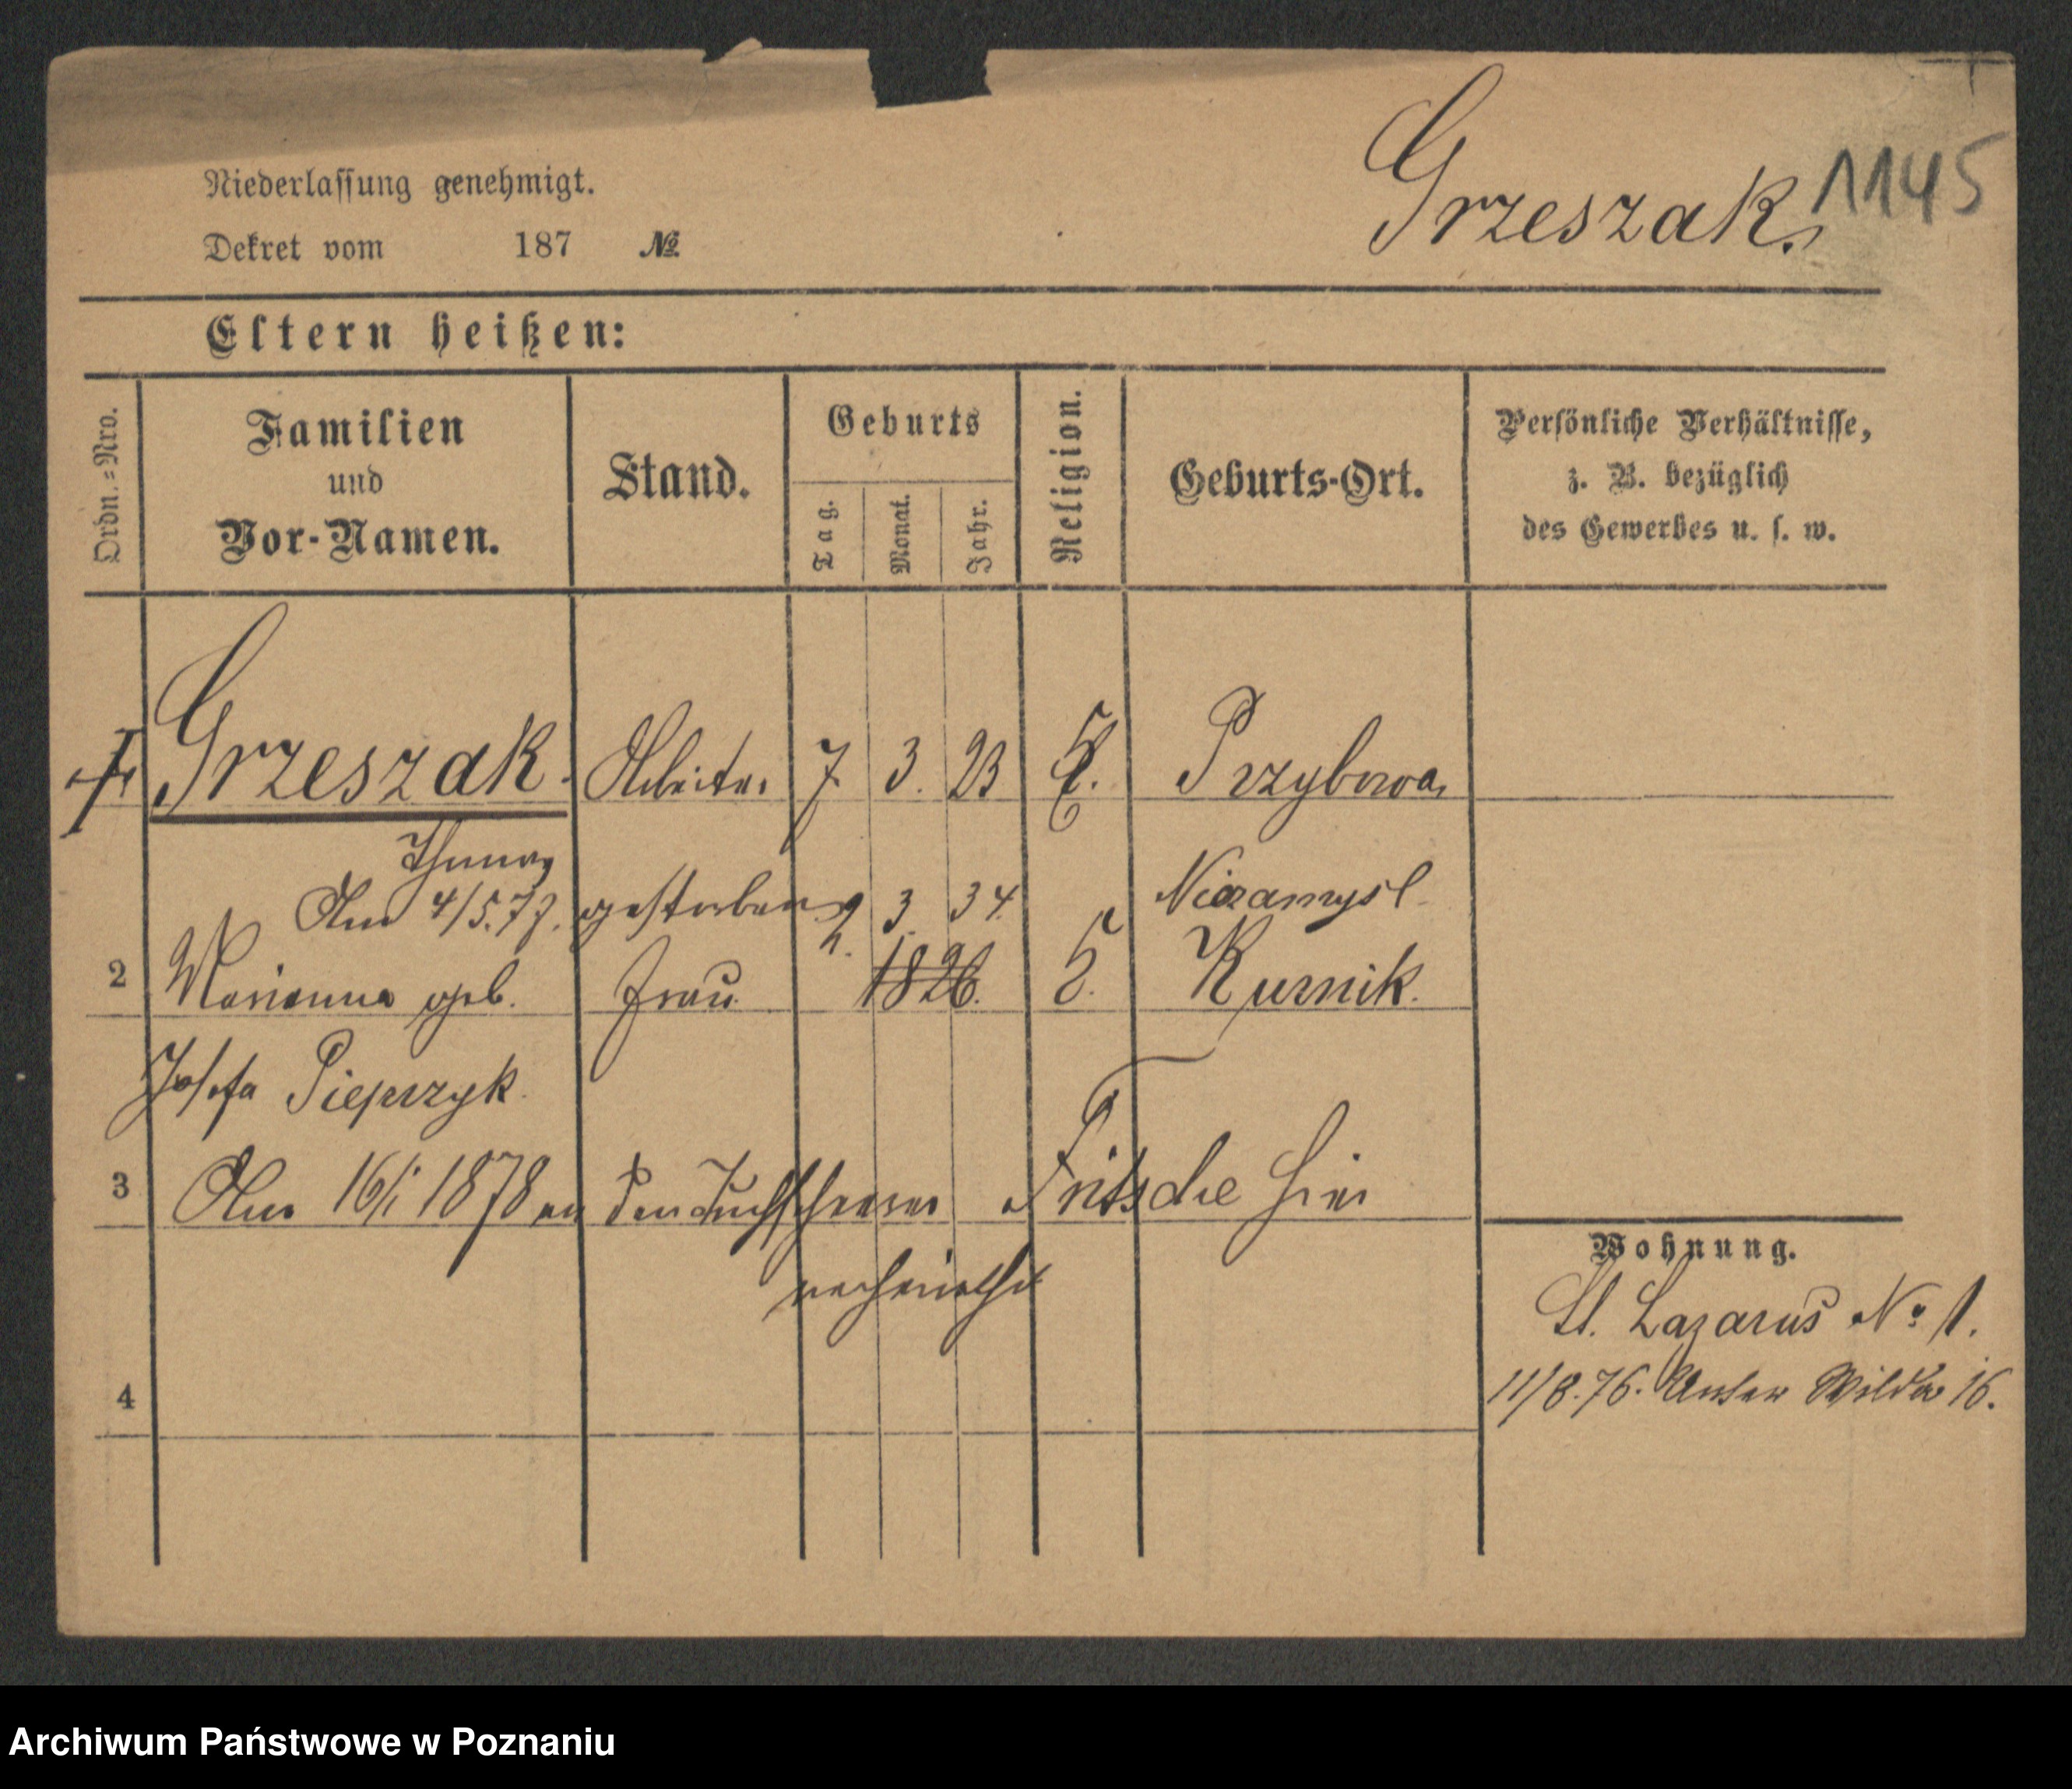 Grzeszak. 1145
Niederlassung genehmigt.
Dekret vom 187 №
Eltern heißen:
Ordn.=Nro.
Familien
und
Vor-Namen.
Stand.
Geburts
Tag.
Monat.
Jahr.
Religion.
Geburts-Ort.
Persönliche Verhältnisse,
z. B. bezüglich
des Gewerbes u. s. w.
Grzeszak. Arbeiter 7. 3. 23
Am 4/5.77. gestorben 3. 34.
2 Marianna geb. Frau 1826. Kurnik.
Josefa Pieprzyk.
3 Am 16/1 1878 an den Tuchscherer Fritsche hier
verheirathet
4
Wohnung.
St. Lazarus No 1.
11/8.76. Unter Wilda 16.
Archiwum Państwowe w Poznaniu